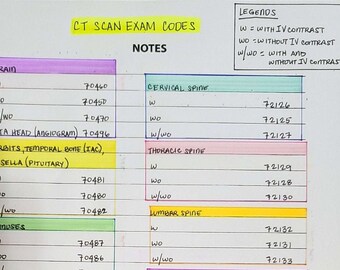 CT SCAN EXAM CODES
NOTES
LEGENDS
W = WITH IV CONTRAST
WO = WITHOUT IV CONTRAST
W/WO = WITH AND
WITHOUT IV CONTRAST
RAIN
70460
O 70450
/WO 70470
TA HEAD (ANGIOGRAM) 70496
RBITS, TEMPORAL BONE (IAC),
SELLA (PITUITARY)
70481
O 70480
W/WO 70482
NUSES
70487
O 70486
70488
CERVICAL SPINE
W 72126
WO 72125
W/WO 72127
THORACIC SPINE
W 72129
WO 72128
W/WO 72130
LUMBAR SPINE
W 72132
WO 72131
W/WO 72133